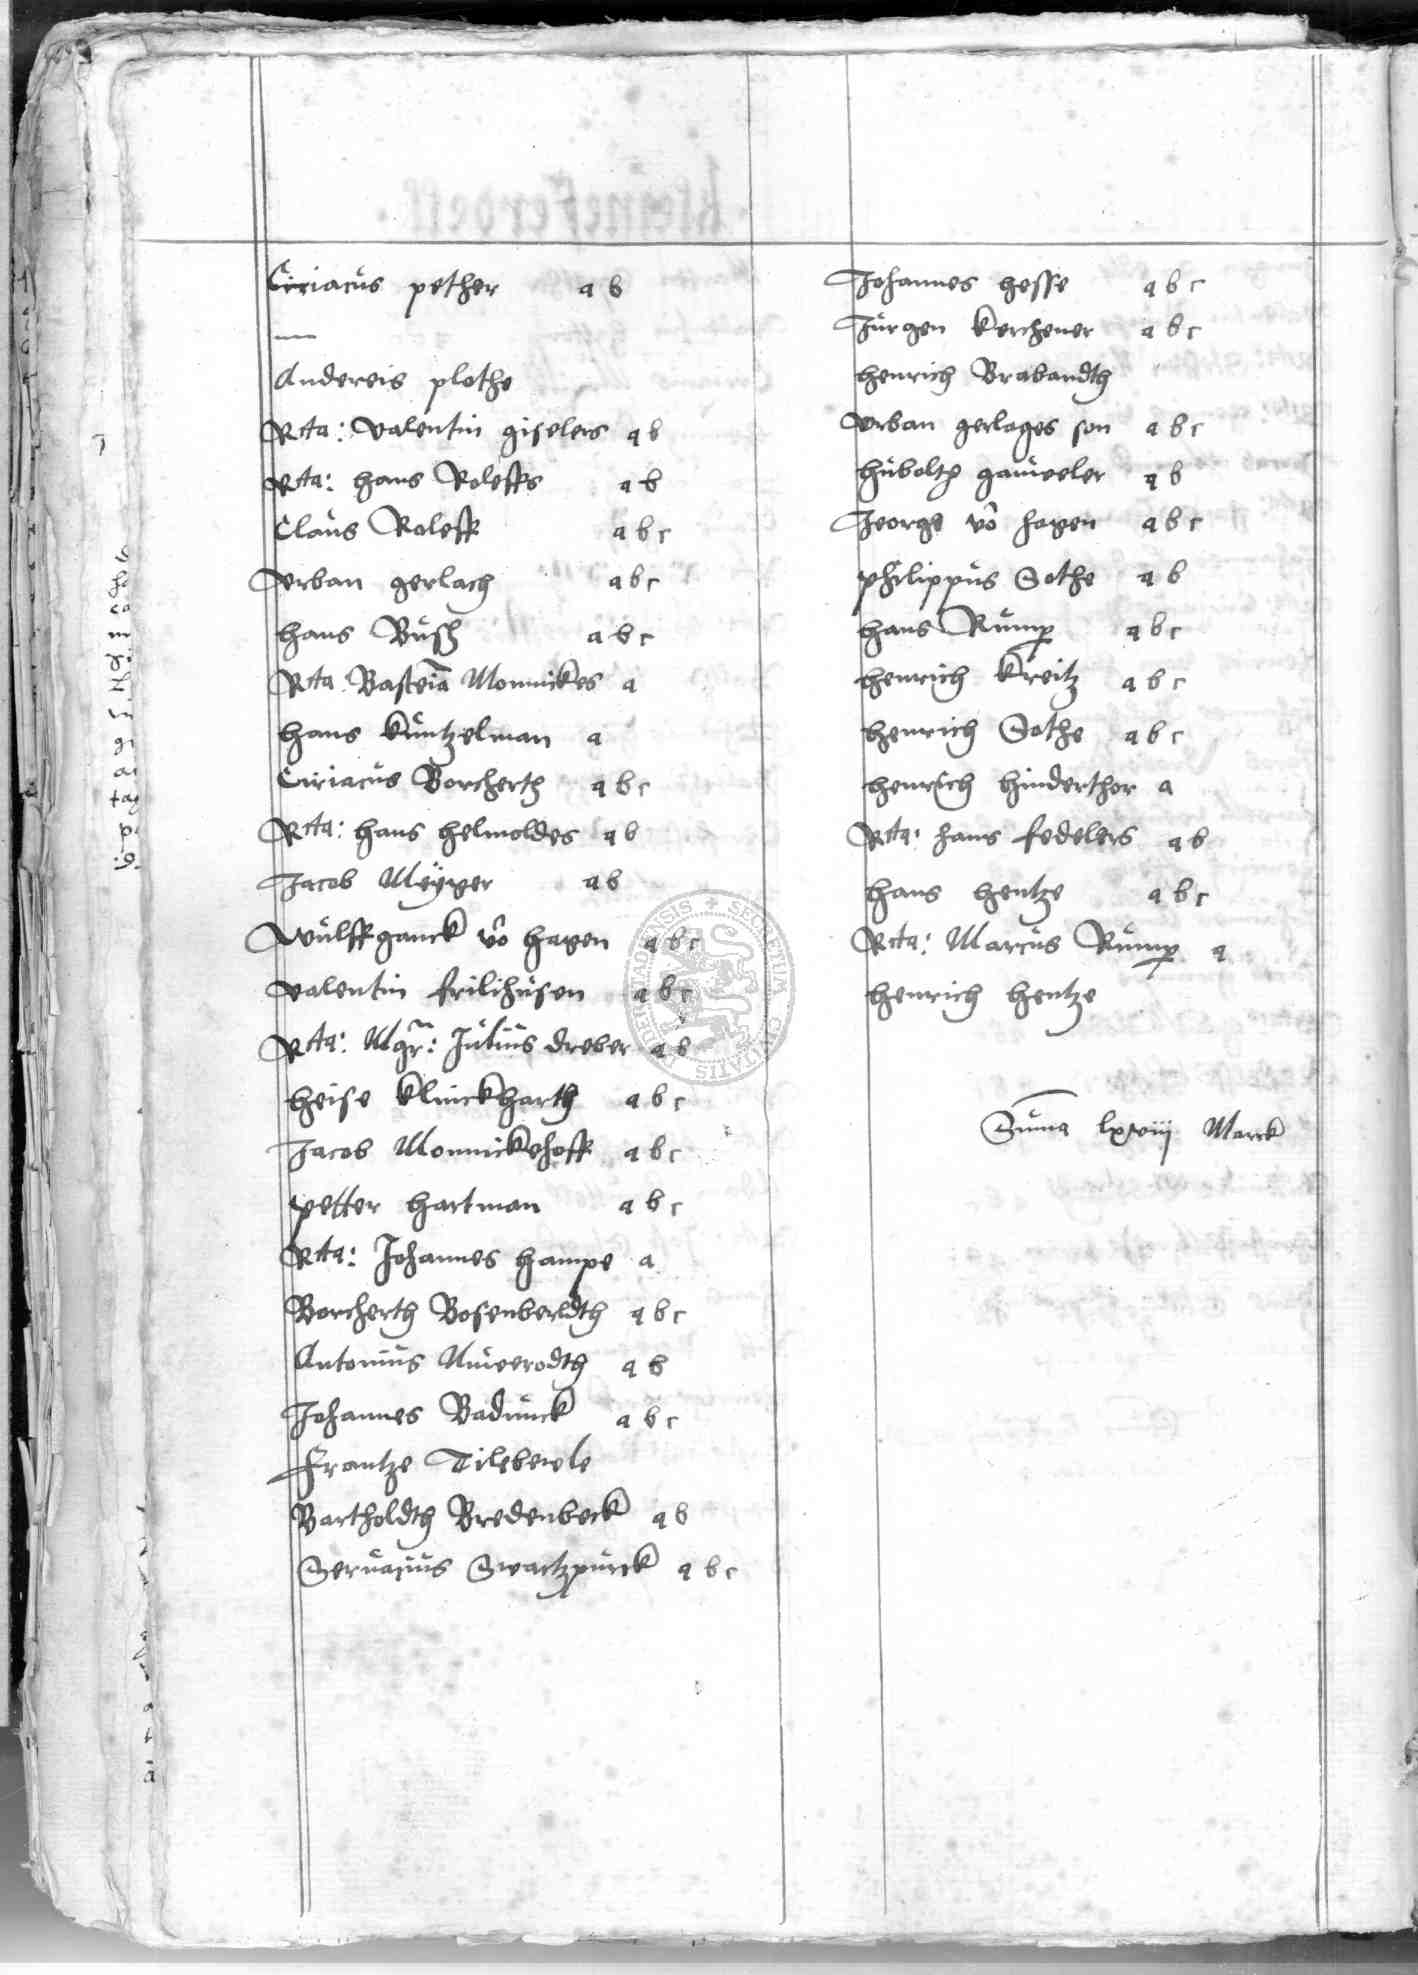 Ciriacus pether a b
Andereis plothe
Rcta: Valentin giselers a b
Rcta: hans Roleffs a b
Claus Roleff a b c
Vrban gerlach a b c
hans Busch a b c
Rcta Basteiā Monnickes a
hans Kuntzelman a
Ciriacus Borcherth a b c
Rcta: hans helmoldes a b
Jacob Meyger a b
Wulffganck vō hagen a b c
Valentin frilihusen a b c
Rcta: Mgr: Julius dreber a b
heise Klinckharth a b c
Jacob Monnickehoff a b c
petter hartman a b c
Rcta: Johannes hampe a
Borcherth Bosenberldth a b c
Antonius a b
Johannes Badunck a b c
Frantze
Bartholdth Bredenbeck a b
Seruacius Swartzpurck a b c
Johannes hesse a b c
Jurgen Kerchener a b c
henrich Brabandth
Vrban gerlages son a b c
huboltp gauweler a b
Jeorge vō hagen a b c
philippus Sothe a b
hans Rump a b c
henrich Kreitz a b c
henrich Sothe a b c
henrich hinderthor a
Rcta: hans fedelers a b
hans hentze a b c
Rcta: Marcus Rump a
henrich hentze
Suma lxviij Marck
SECRETUM CIVITATIS DUDERSTADIENSIS